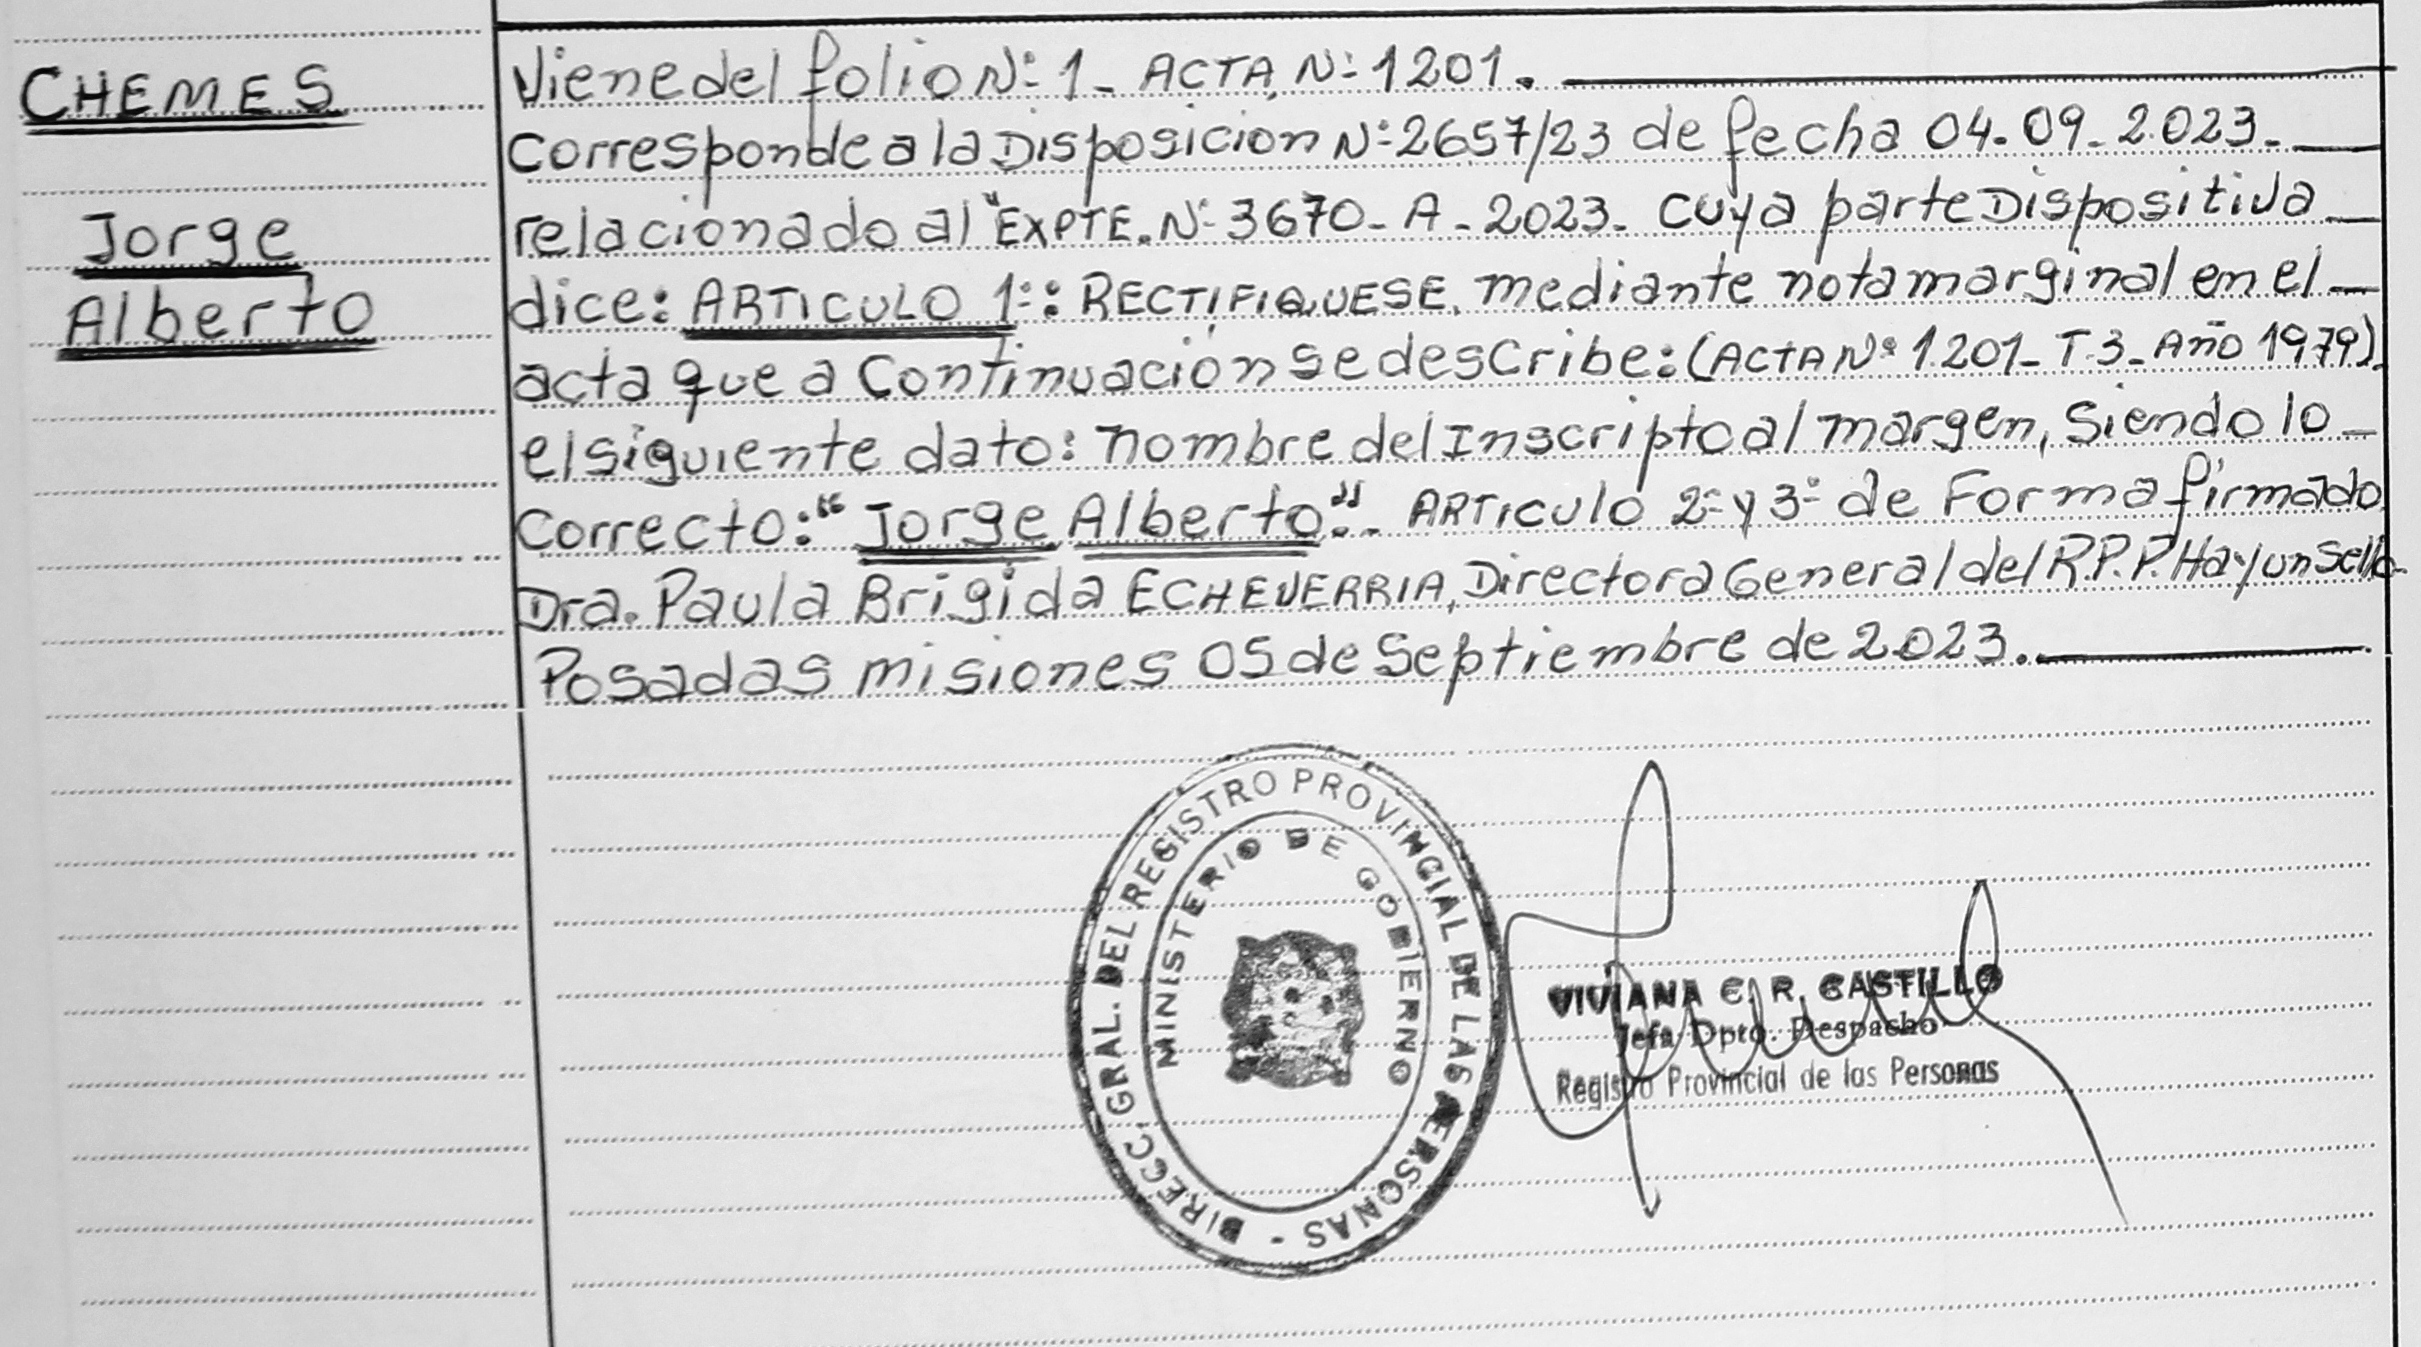 CHEMES
Jorge
Alberto
Viene del folio Nº 1 - ACTA Nº 1201.
Corresponde a la Disposicion Nº 2657/23 de fecha 04-09-2023.-
relacionado al "EXPTE. Nº 3670-A-2023- cuya parte Dispositiva
dice: ARTICULO 1º: RECTIFIQUESE, mediante nota marginal en el
acta que a continuación se describe: (ACTA Nº 1201-T.3-Año 1979)
el siguiente dato: nombre del Inscripto al margen, siendo lo
correcto: "Jorge Alberto".- ARTiculo 2º y 3º de Forma firmado
Dra. Paula Brigida ECHEVERRIA, Directora General del R.P.P. Hay un sello.
Posadas misiones 05 de septiembre de 2023.
DIRECC. GRAL. DEL REGISTRO PROVINCIAL DE LAS PERSONAS -
MINISTERIO DE GOBIERNO
VIVIANA C. R. CASTILLO
Jefa Dpto. Despacho
Registro Provincial de las Personas